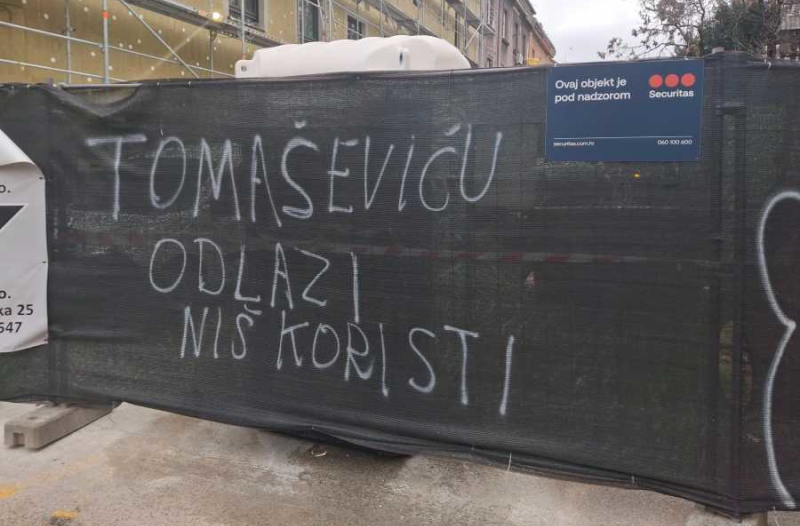 Ovaj objekt je
pod nadzorom
Securitas
securitas.com.hr
060 100 600
TOMAŠEVIĆU
ODLAZI
NIŠ KORISTI
o.
o.
ka 25
547